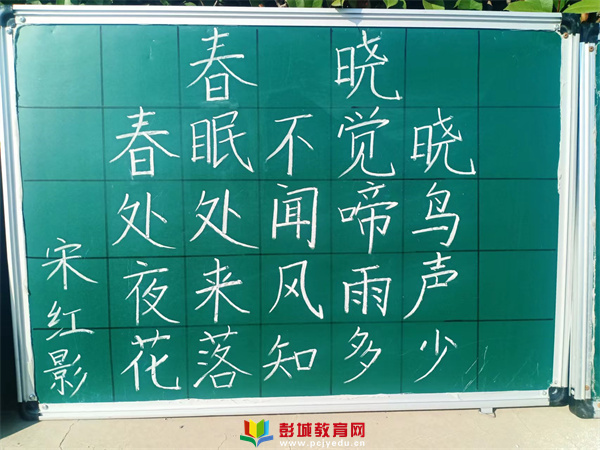 春晓
春眠不觉晓
处处闻啼鸟
夜来风雨声
花落知多少
宋红影
彭城教育网
www.pcjyedu.cn